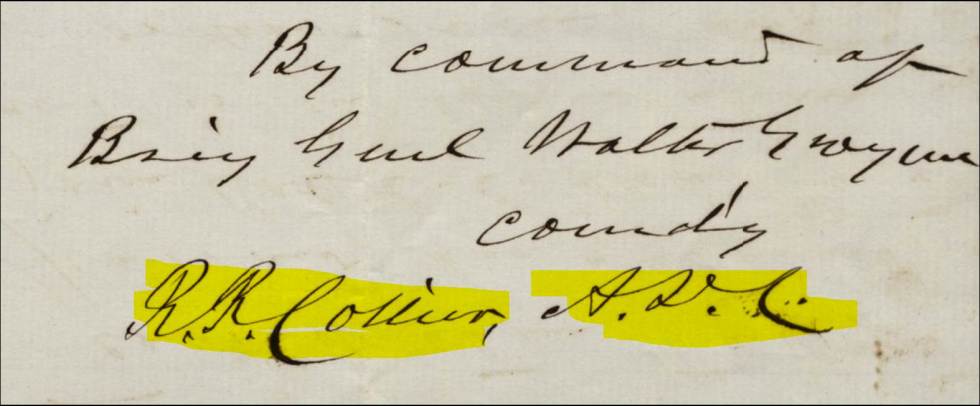 By command of
Brig Genl Walter Gwynn
comdg
R. R. Collier, A. D. C.